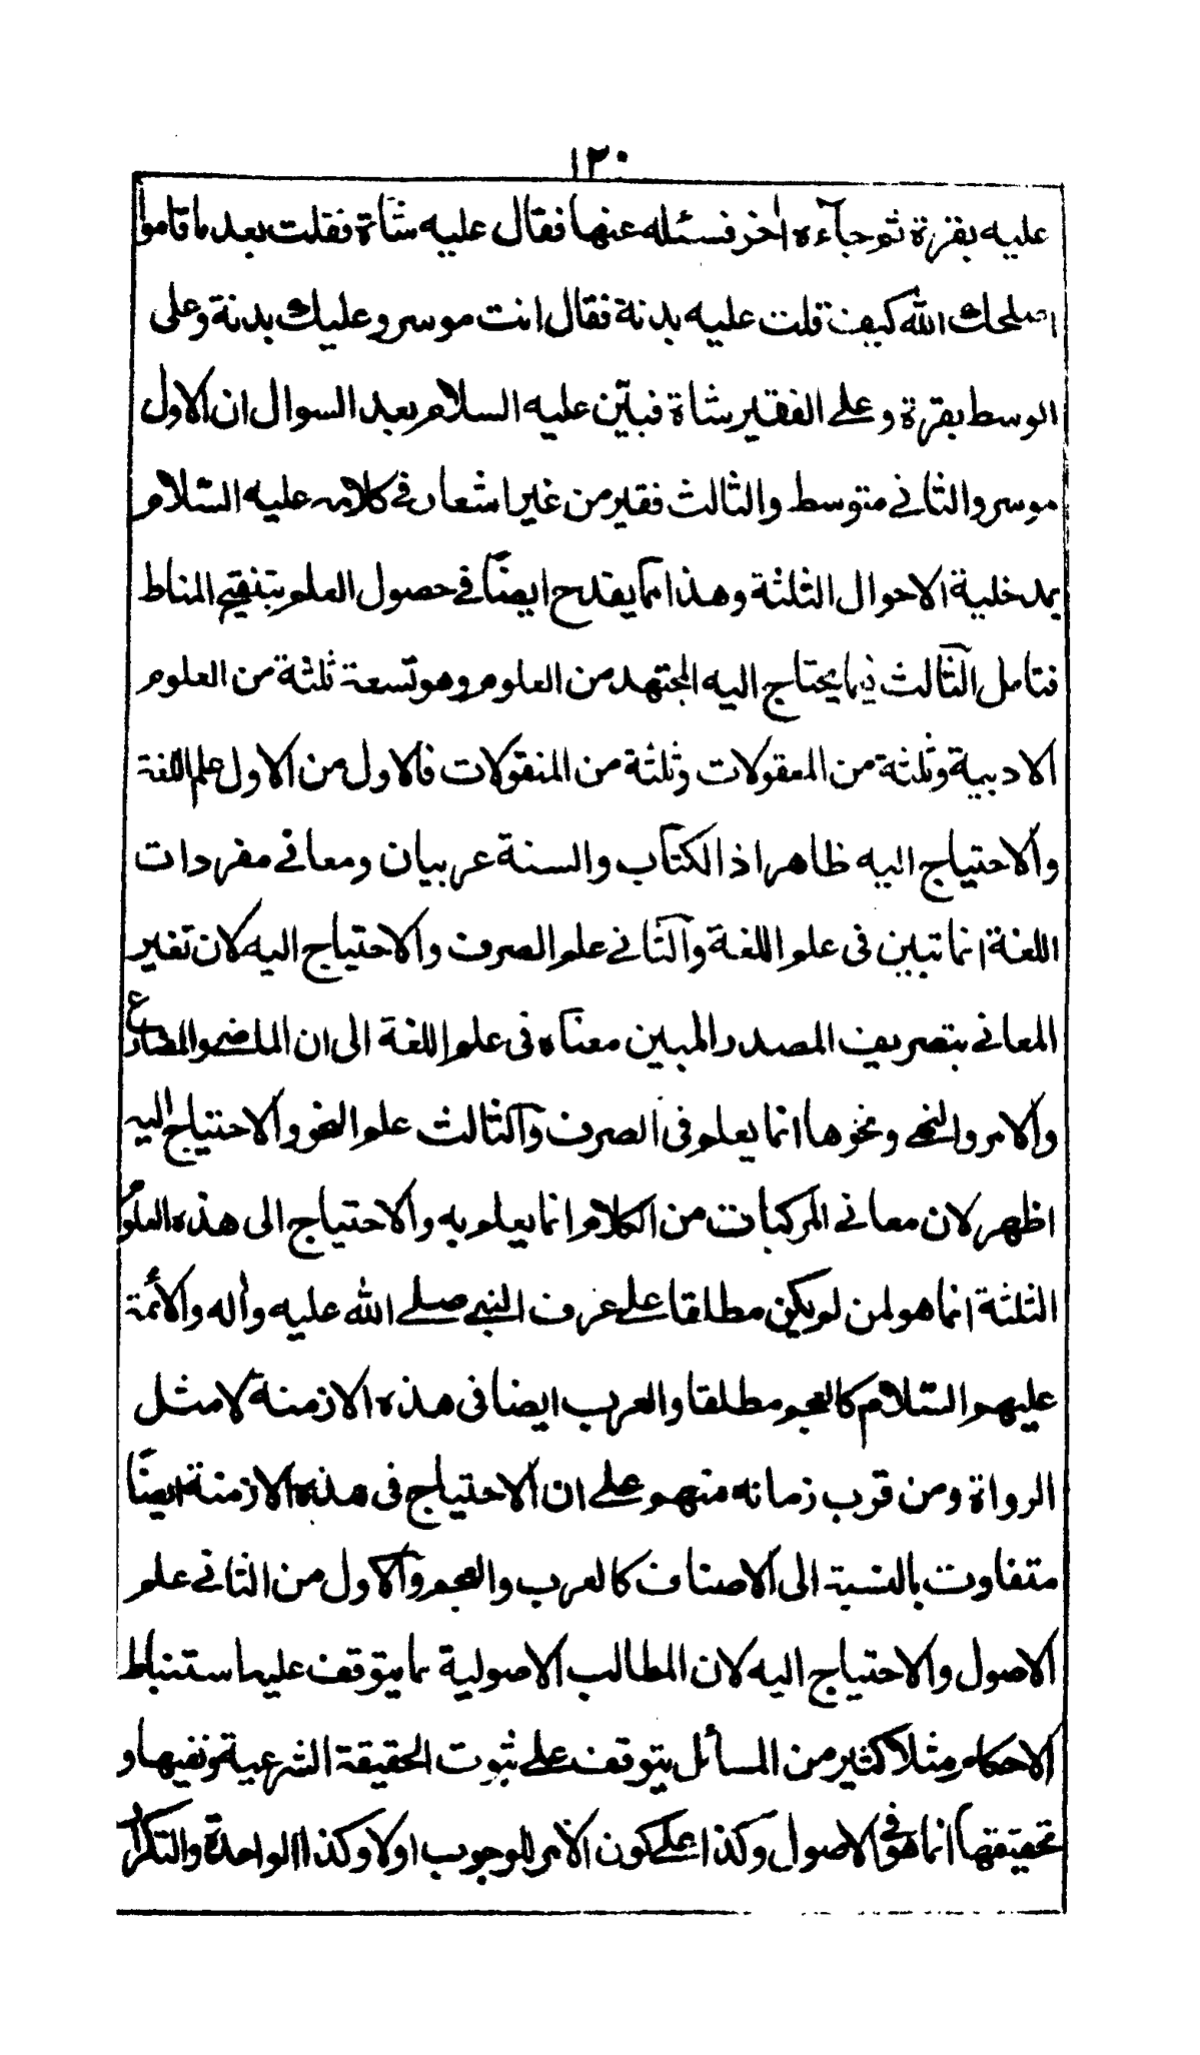 ١٢٠
عليه بقرة ثم جآءه اخر فسئله عنها فقال عليه شاة فقلت بعد ما قاموا
اصلحك الله كيف قلت عليه بدنة فقال انت موسر وعليك بدنة وعلى
الوسط بقرة وعلى الفقير شاة فبيّن عليه السلام بعد السوال ان الاول
موسر والثاني متوسط والثالث فقير من غير اشعار في كلامه عليه السّلام
بمدخلية الاحوال الثلثة وهذا مما يقدح ايضًا في حصول العلم بتنقيح المناط
فتامل الثالث فيما يحتاج اليه المجتهد من العلوم وهو تسعة ثلثة من العلوم
الادبية وثلثة من المعقولات وثلثة من المنقولات فالاول من الاول علم اللغة
والاحتياج اليه ظاهر اذ الكتاب والسنة عربيان ومعاني مفردات
اللغة انما تبين فى علم اللغة والثاني علم الصرف والاحتياج اليه لان تغير
المعاني بتصريف المصدر المبين معناه فى علم اللغة الى ان الماضي والمضارع
والامر والنهي ونحوها انما يعلم فى الصرف والثالث علم النحو والاحتياج اليه
اظهر لان معاني المركبات من الكلام انما يعلم به والاحتياج الى هذه العلوم
الثلثة انما هو لمن لم يكن مطلقا على عرف النبي صلى الله عليه واله والأئمة
عليهم السّلام كالعجم مطلقا والعرب ايضا فى هذه الازمنة لا مثل
الرواة ومن قرب زمانه منهم على ان الاحتياج فى هذه الازمنة ايضًا
متفاوت بالنسبة الى الاصناف كالعرب والعجم والاول من الثاني علم
الاصول والاحتياج اليه لان المطالب الاصولية مما يتوقف عليها استنباط
الاحكام مثلا كثير من المسائل يتوقف على ثبوت الحقيقة الشرعية ونفيها و
تحقيقها انما هو فى الاصول وكذا على كون الامر للوجوب اولا وكذا الواحدة والتكرار